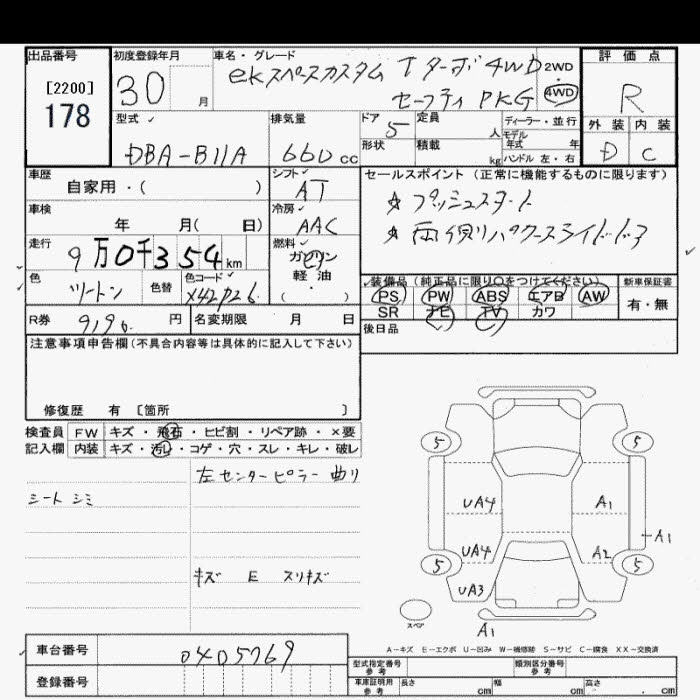 出品番号 初度登録年月 車名・グレード 評価点
[2200]
178
30 月
ekスペースカスタム Tターボ4WD
セーフティPKG
2WD
4WD
R
外装 内装
D C
型式 排気量 ドア 定員 ディーラー・並行
DBA-B11A 660cc 5 人 モデル年式 年
形状 積載 kg ハンドル 左・右
車歴 シフト セールスポイント(正常に機能するものに限ります)
自家用・( ) AT
☆ プッシュスタート
車検 冷房
年 月( 日) AAC
☆ 両側パワースライドドア
走行 燃料
9万0千354km ガソリン
軽油
( ・ )
色 色替 色コード
ツートン X42P26
装備品(純正品に限り○をつけてください) 新車保証書
PS PW ABS エアB AW 有・無
SR ナビ TV カワ
R券 円 名変期限 月 日 後日品
注意事項申告欄(不具合内容等は具体的に記入して下さい)
修復歴 有 〔箇所 〕
検査員 FW キズ・飛石・ヒビ割・リペア跡・×要
記入欄 内装 キズ・汚れ・コゲ・穴・スレ・キレ・破レ
左センターピラー曲り
シート シミ
キズ E スリキズ
5 5
UA4 A1
A1
UA4 A2
5 5
UA3
スペア
A1
A-キズ E-エクボ U-凹み W-補修跡 S-サビ C-腐食 XX-交換済
車台番号 0405769
登録番号
型式指定番号 参考 類別区分番号 参考
車庫証明用 参考 長さ cm 幅 cm 高さ cm